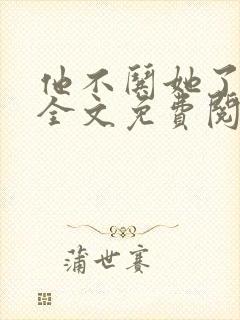 他不闹她了
全文免费阅
蒲世赛